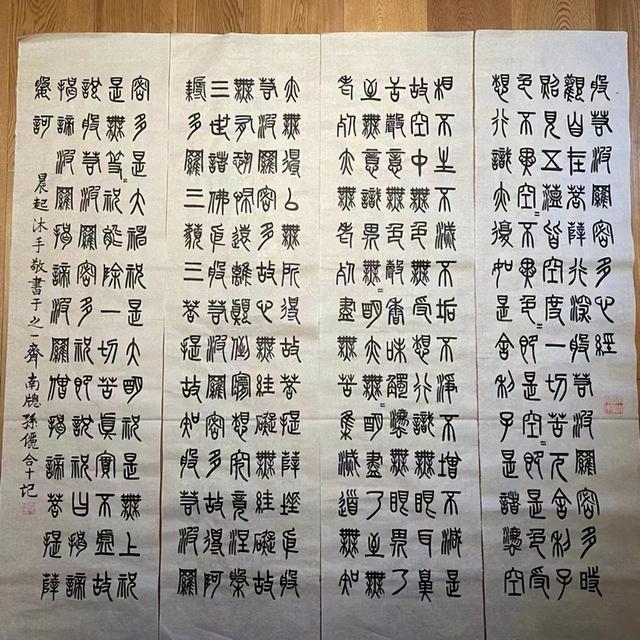 般若波羅密多心經
觀自在菩薩行深般若波羅密多時
照見五蘊皆空度一切苦厄舍利子
色不異空〻不異色〻即是空〻即是色受
想行識亦復如是舍利子是諸法空
相不生不滅不垢不淨不增不減是
故空中無色無受想行識無眼耳鼻
舌身意無色聲香味觸法無眼界乃
至無意識界無〻明亦無〻明盡乃至無
老死亦無老死盡無苦集滅道無知
亦無得以無所得故菩提薩埵依般
若波羅密多故心無罣礙無罣礙故
無有恐怖遠離顛倒夢想究竟涅槃
三世諸佛依般若波羅密多故得阿
耨多羅三藐三菩提故知般若波羅
密多是大神咒是大明咒是無上咒
是無等〻咒能除一切苦真實不虛故
說般若波羅密多咒即說咒曰揭諦
揭諦波羅揭諦波羅僧揭諦菩提薩
婆訶
晨起沐手敬書于之一齋南牕孫儷合十記